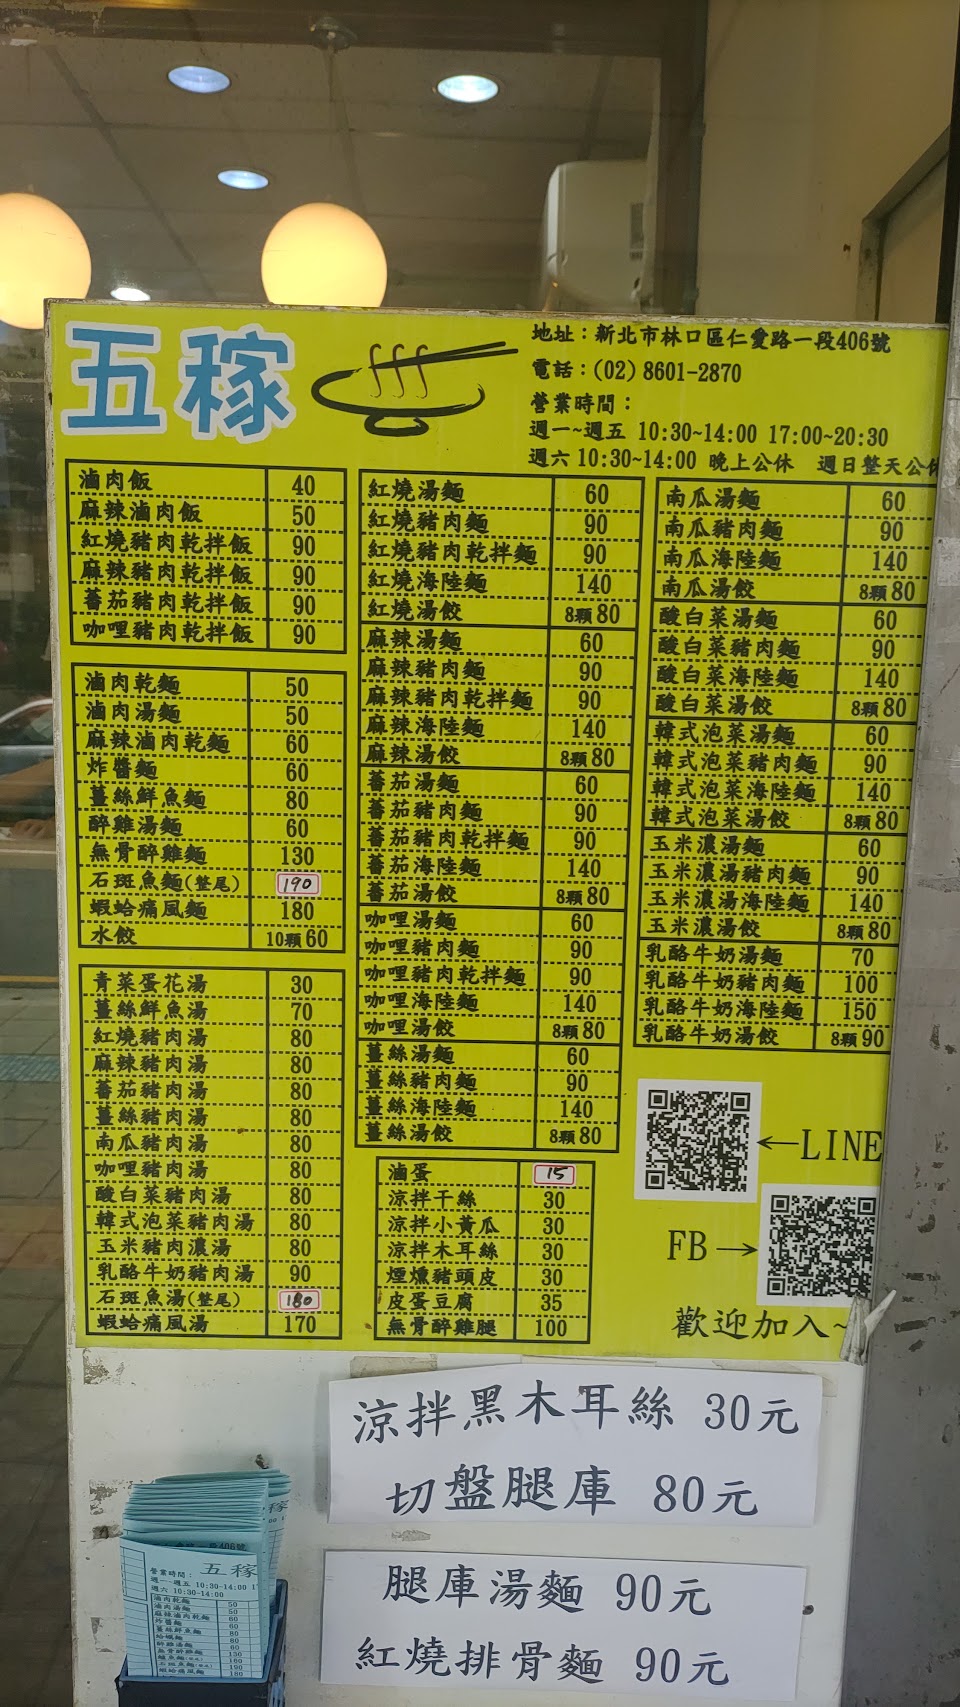 五稼
地址：新北市林口區仁愛路一段406號
電話：(02) 8601-2870
營業時間：
週一~週五 10:30~14:00 17:00~20:30
週六 10:30~14:00 晚上公休 週日整天公休
滷肉飯 40
麻辣滷肉飯 50
紅燒豬肉乾拌飯 90
麻辣豬肉乾拌飯 90
蕃茄豬肉乾拌飯 90
咖哩豬肉乾拌飯 90
滷肉乾麵 50
滷肉湯麵 50
麻辣滷肉乾麵 60
炸醬麵 60
薑絲鮮魚麵 80
醉雞湯麵 60
無骨醉雞麵 130
石斑魚麵(整尾) 190
蝦蛤痛風麵 180
水餃 10顆60
青菜蛋花湯 30
薑絲鮮魚湯 70
紅燒豬肉湯 80
麻辣豬肉湯 80
蕃茄豬肉湯 80
薑絲豬肉湯 80
南瓜豬肉湯 80
咖哩豬肉湯 80
酸白菜豬肉湯 80
韓式泡菜豬肉湯 80
玉米豬肉濃湯 80
乳酪牛奶豬肉湯 90
石斑魚湯(整尾) 180
蝦蛤痛風湯 170
紅燒湯麵 60
紅燒豬肉麵 90
紅燒豬肉乾拌麵 90
紅燒海陸麵 140
紅燒湯餃 8顆80
麻辣湯麵 60
麻辣豬肉麵 90
麻辣豬肉乾拌麵 90
麻辣海陸麵 140
麻辣湯餃 8顆80
蕃茄湯麵 60
蕃茄豬肉麵 90
蕃茄豬肉乾拌麵 90
蕃茄海陸麵 140
蕃茄湯餃 8顆80
咖哩湯麵 60
咖哩豬肉麵 90
咖哩豬肉乾拌麵 90
咖哩海陸麵 140
咖哩湯餃 8顆80
薑絲湯麵 60
薑絲豬肉麵 90
薑絲海陸麵 140
薑絲湯餃 8顆80
滷蛋 15
涼拌干絲 30
涼拌小黃瓜 30
涼拌木耳絲 30
煙燻豬頭皮 30
皮蛋豆腐 35
無骨醉雞腿 100
南瓜湯麵 60
南瓜豬肉麵 90
南瓜海陸麵 140
南瓜湯餃 8顆80
酸白菜湯麵 60
酸白菜豬肉麵 90
酸白菜海陸麵 140
酸白菜湯餃 8顆80
韓式泡菜湯麵 60
韓式泡菜豬肉麵 90
韓式泡菜海陸麵 140
韓式泡菜湯餃 8顆80
玉米濃湯麵 60
玉米濃湯豬肉麵 90
玉米濃湯海陸麵 140
玉米濃湯餃 8顆80
乳酪牛奶湯麵 70
乳酪牛奶豬肉麵 100
乳酪牛奶海陸麵 150
乳酪牛奶湯餃 8顆90
←LINE
FB→
歡迎加入~
涼拌黑木耳絲 30元
切盤腿庫 80元
腿庫湯麵 90元
紅燒排骨麵 90元
五稼
營業時間：
週一~週五 10:30-14:00
週六 10:30-14:00
滷肉乾麵 50
滷肉湯麵 50
麻辣滷肉乾麵 60
炸醬麵 60